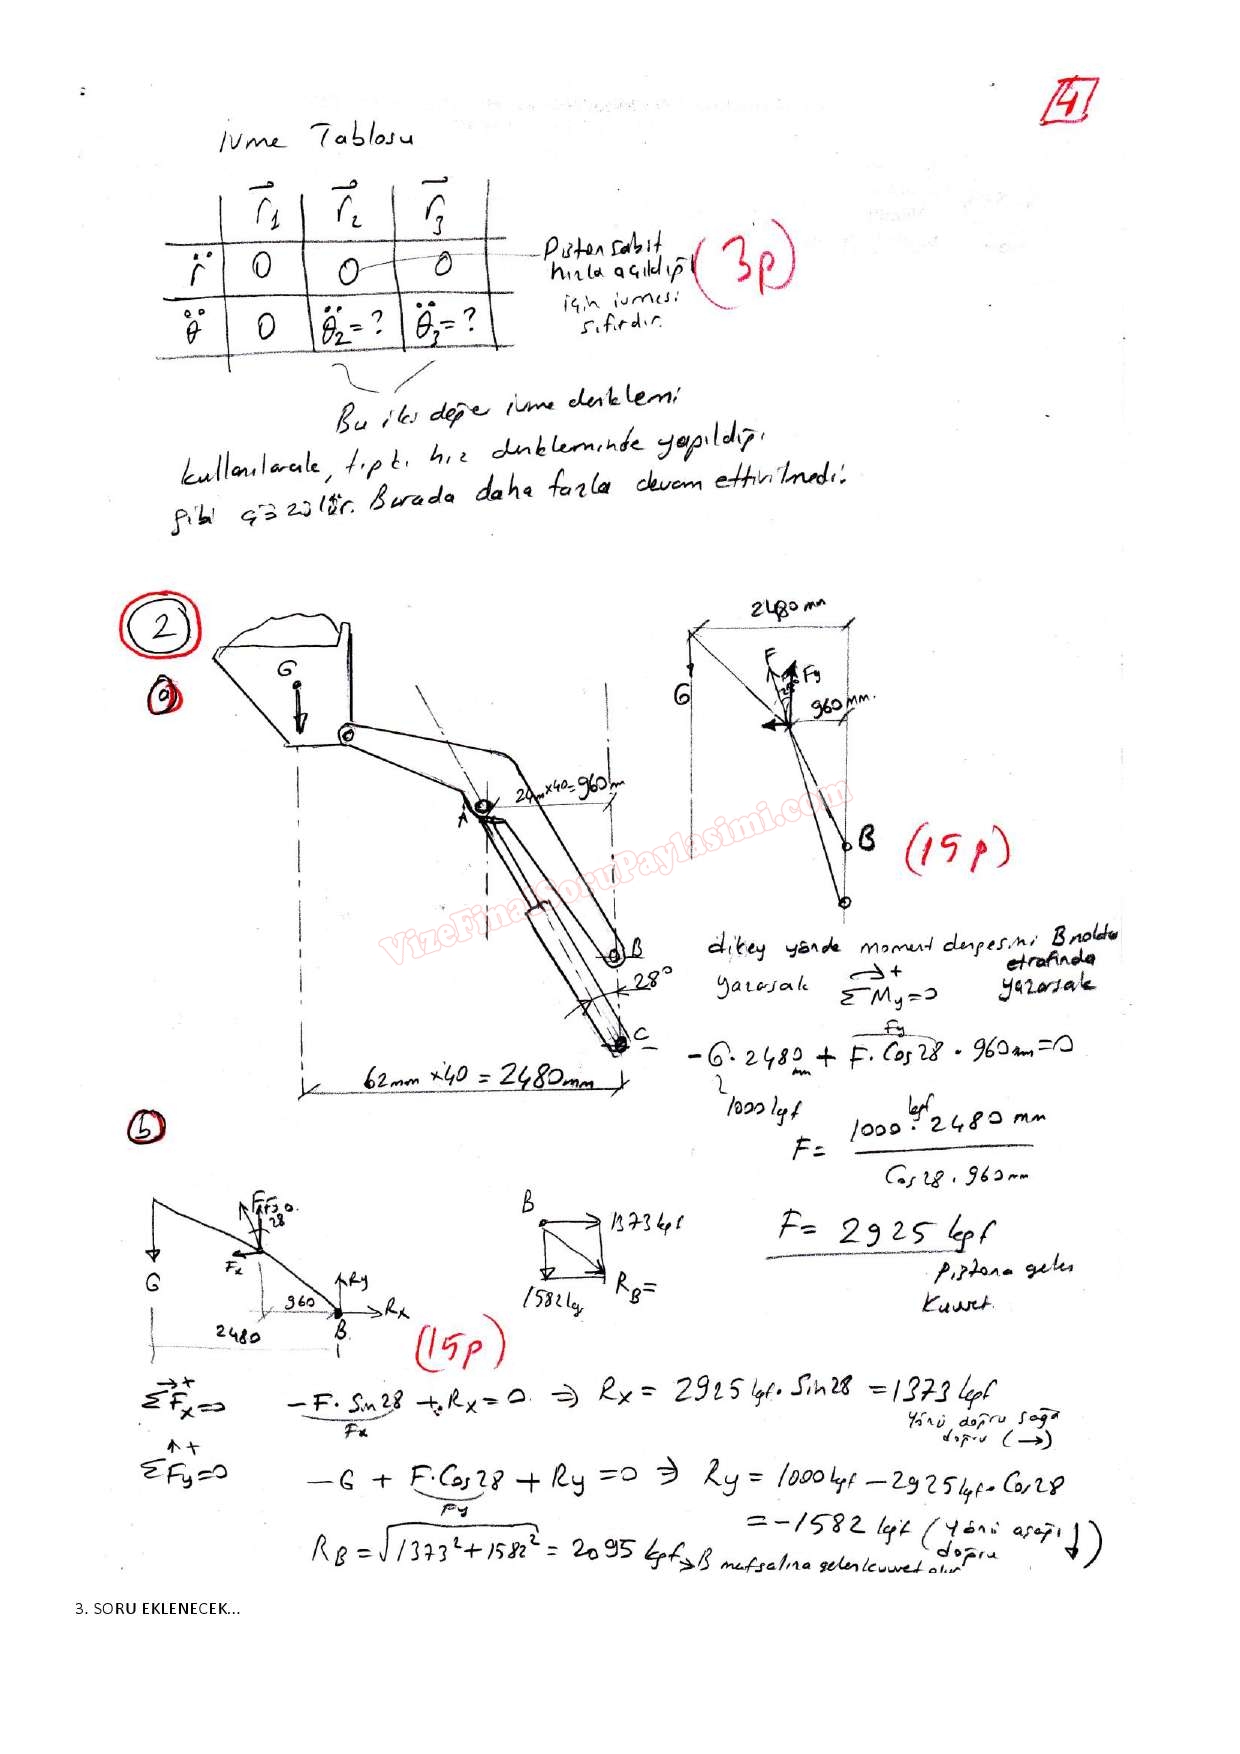 4
İvme Tablosu
r1 r2 r3
r̈ 0 0 0
Piston sabit
hızla açıldığı
için ivmesi
sıfırdır.
(3p)
θ̈ 0 θ̈2=? θ̈3=?
Bu iki değer ivme denklemi
kullanılarak, tıpkı hız denkleminde yapıldığı
gibi çözülür. Burada daha fazla devam ettirilmedi.
2
a
G
A
24mm×40=960mm
B
28°
C
62mm ×40 = 2480mm
2480mm
F
Fy
28°
G
960mm.
B
(15p)
VizeFinalSoruPaylasimi.com
dikey yönde moment dengesini B noktası
etrafında
yazarsak ΣMy=0 yazarsak
Fy
-G.2480mm + F.Cos28.960mm=0
1000kgf
F= 1000kgf.2480mm
Cos28.960mm
F= 2925kgf
Pistona gelen
Kuvvet.
b
F
Fy
28
Fx
G
Ry
960
Rx
2480
B
(15p)
B
1373kgf
1582kg
RB=
ΣFx=0 -F.Sin28 +Rx=0 ⇒ Rx = 2925kgf.Sin28 =1373kgf
Fx
Yönü doğru sağa
doğru (→)
ΣFy=0 -G + F.Cos28 + Ry =0 ⇒ Ry= 1000kgf-2925kgf.Cos28
Fy
=-1582kgf (Yönü aşağı
doğru ↓)
RB=√1373²+1582² = 2095kgf→B mafsalına gelen kuvvet olur
3. SORU EKLENECEK...